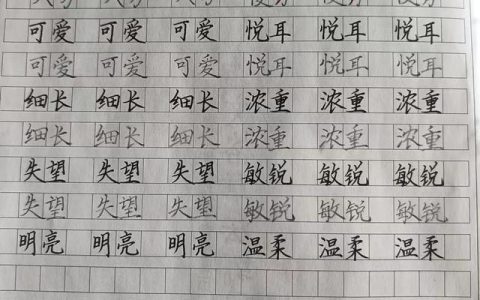 可爱 可爱 可爱 悦耳 悦耳 悦耳
可爱 可爱 可爱 悦耳 悦耳 悦耳
细长 细长 细长 浓重 浓重 浓重
细长 细长 细长 浓重 浓重 浓重
失望 失望 失望 敏锐 敏锐 敏锐
失望 失望 失望 敏锐 敏锐 敏锐
明亮 明亮 明亮 温柔 温柔 温柔